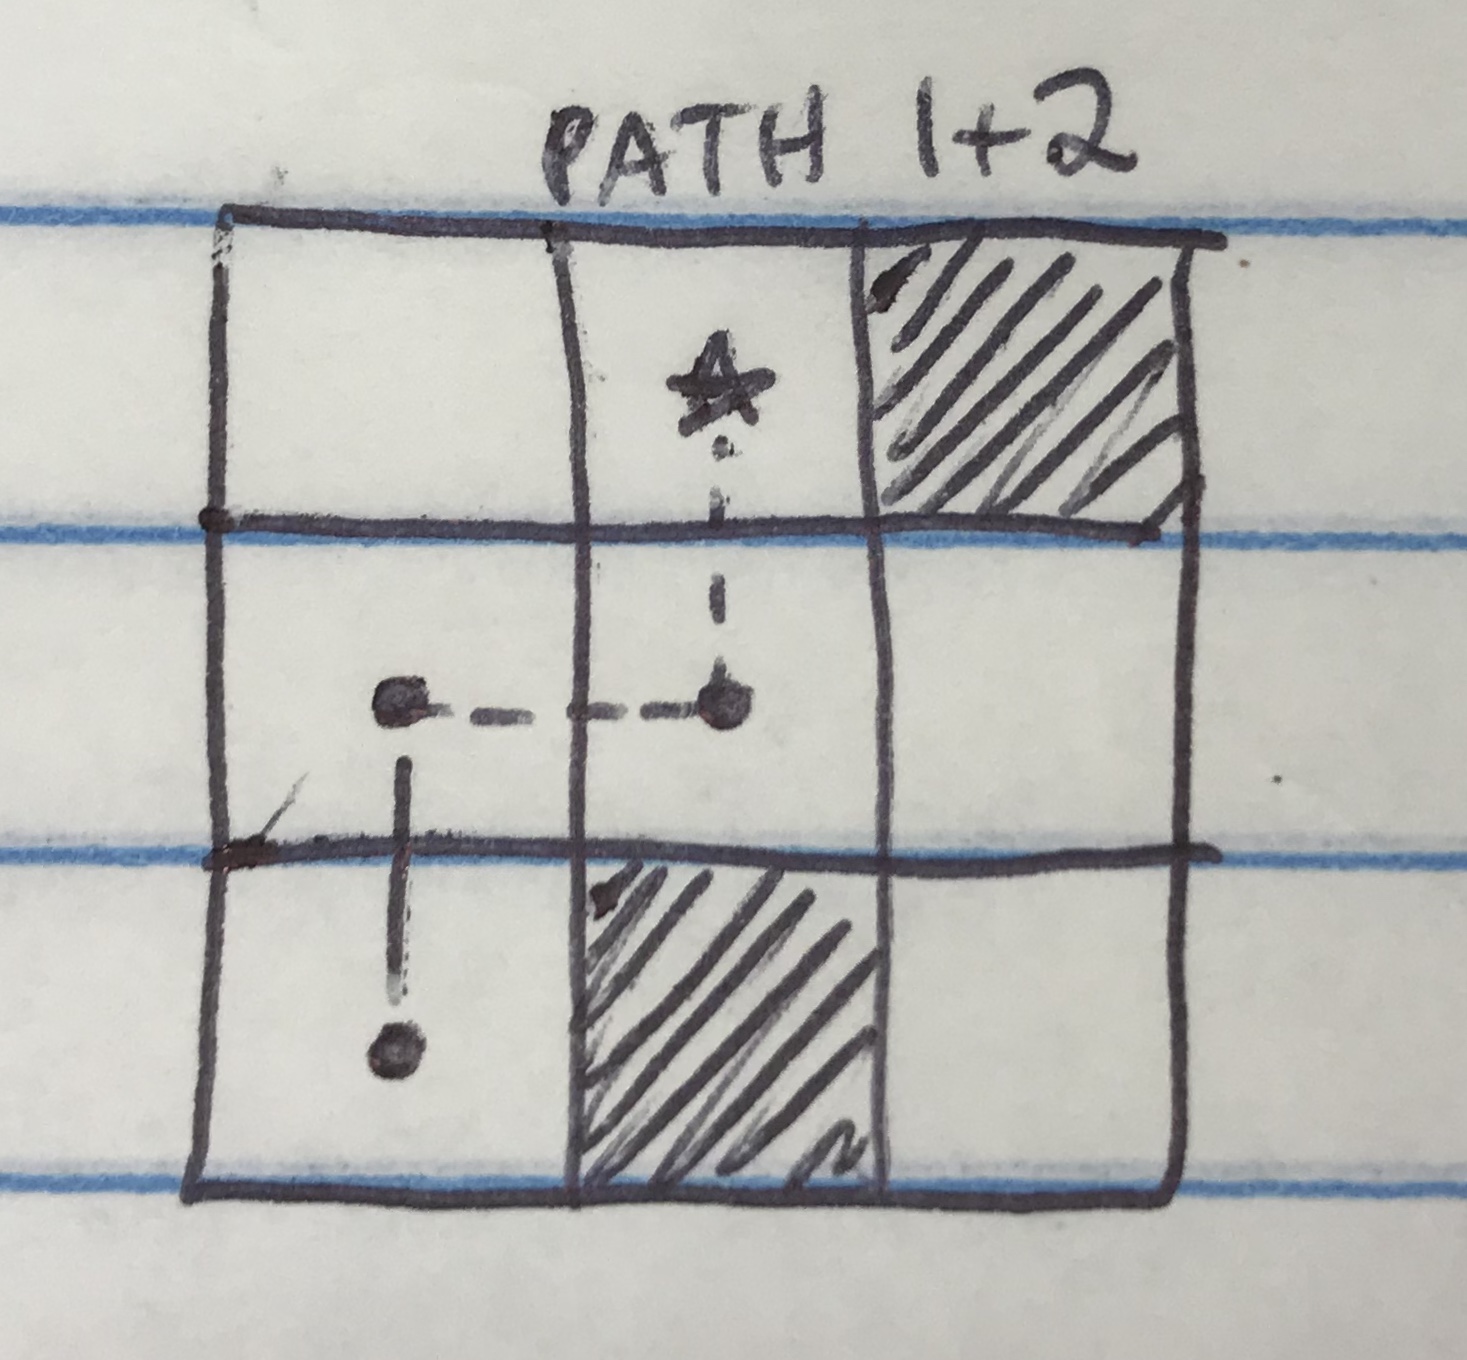 PATH 1+2